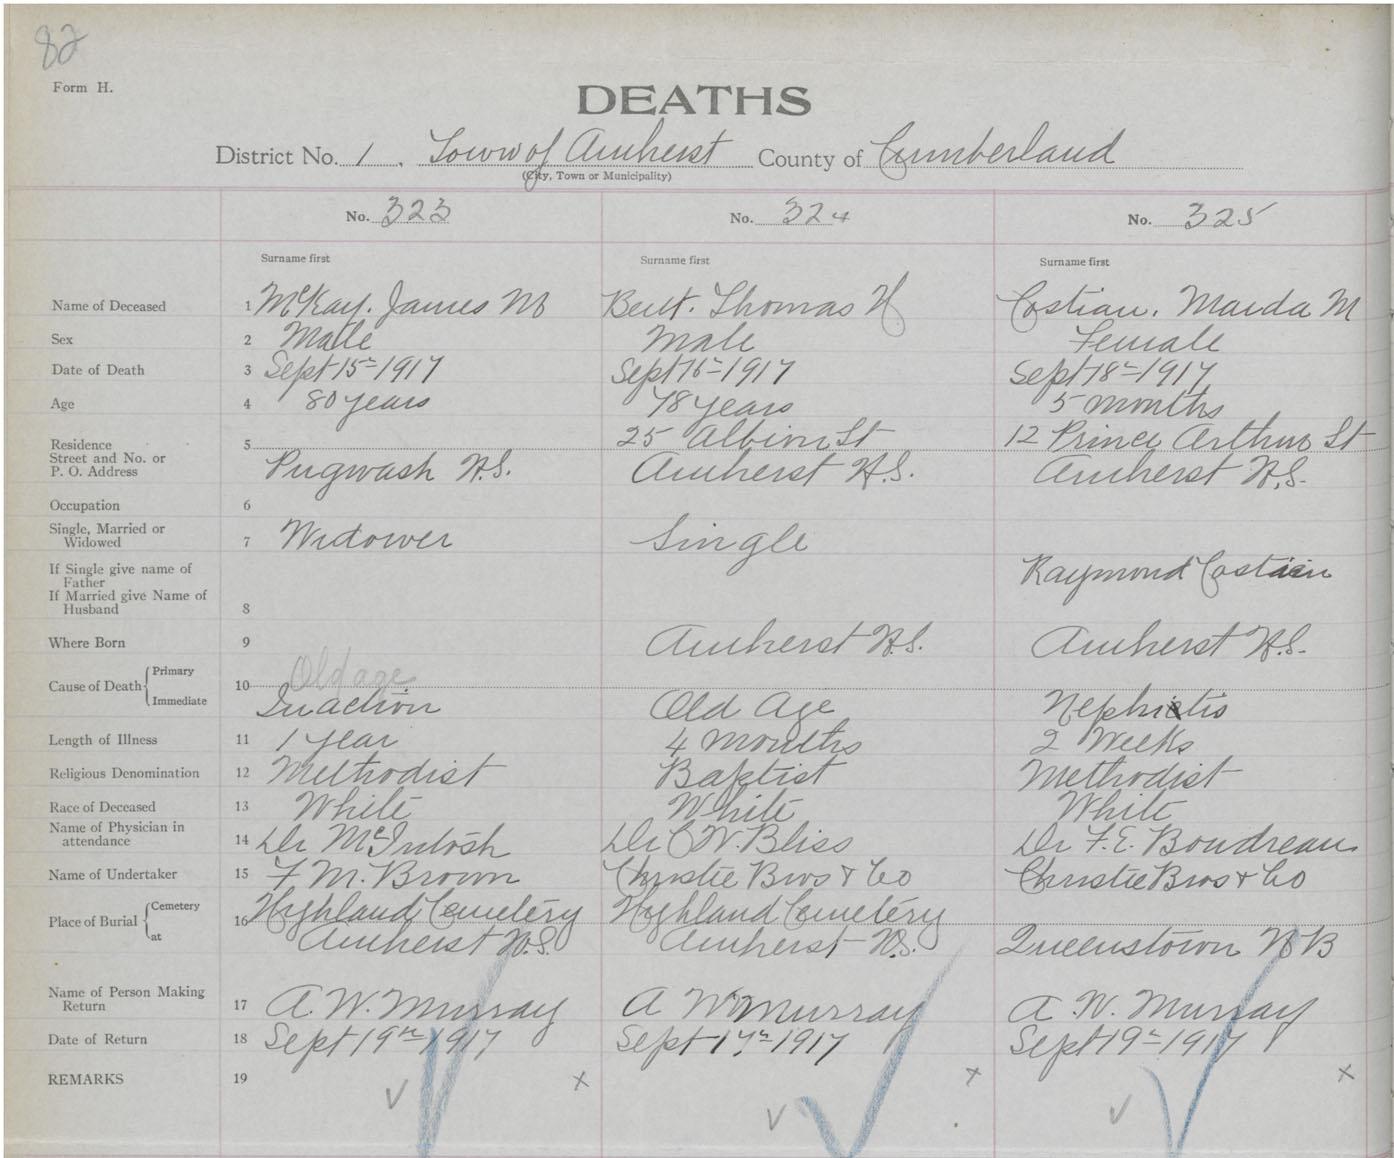 82
Form H.
DEATHS
District No. 1, Town of Amherst County of Cumberland
(City, Town or Municipality)
No. 323 No. 324 No. 325
Surname first Surname first Surname first
Name of Deceased 1 McKay. James M Bent. Thomas Costian. Marda M
Sex 2 Male Male Female
Date of Death 3 Sept 15th 1917 Sept 16th 1917 Sept 18th 1917
Age 4 80 years 78 years 5 months
Residence 5 25 Albion St 12 Prince Arthur St
Street and No. or
P. O. Address Pugwash N.S. Amherst N.S. Amherst N.S.
Occupation 6
Single, Married or
Widowed 7 Widower Single
If Single give name of Raymond Costain
Father
If Married give Name of
Husband 8
Where Born 9 Amherst N.S. Amherst N.S.
Cause of Death Primary 10 Old age
Immediate Inaction Old Age Nephritis
Length of Illness 11 1 year 4 months 2 Weeks
Religious Denomination 12 Methodist Baptist Methodist
Race of Deceased 13 White White White
Name of Physician in
attendance 14 Dr McIntosh Dr C W. Bliss Dr F. E. Boudreau
Name of Undertaker 15 F M. Brown Christie Bros & Co Christie Bros & Co
Place of Burial Cemetery 16 Highland Cemetery Highland Cemetery
at Amherst N.S. Amherst N.S. Queenstown N B
Name of Person Making
Return 17 A. W. Murray A W Murray A. W. Murray
Date of Return 18 Sept 19th 1917 Sept 17th 1917 Sept 19th 1917
REMARKS 19 x x x